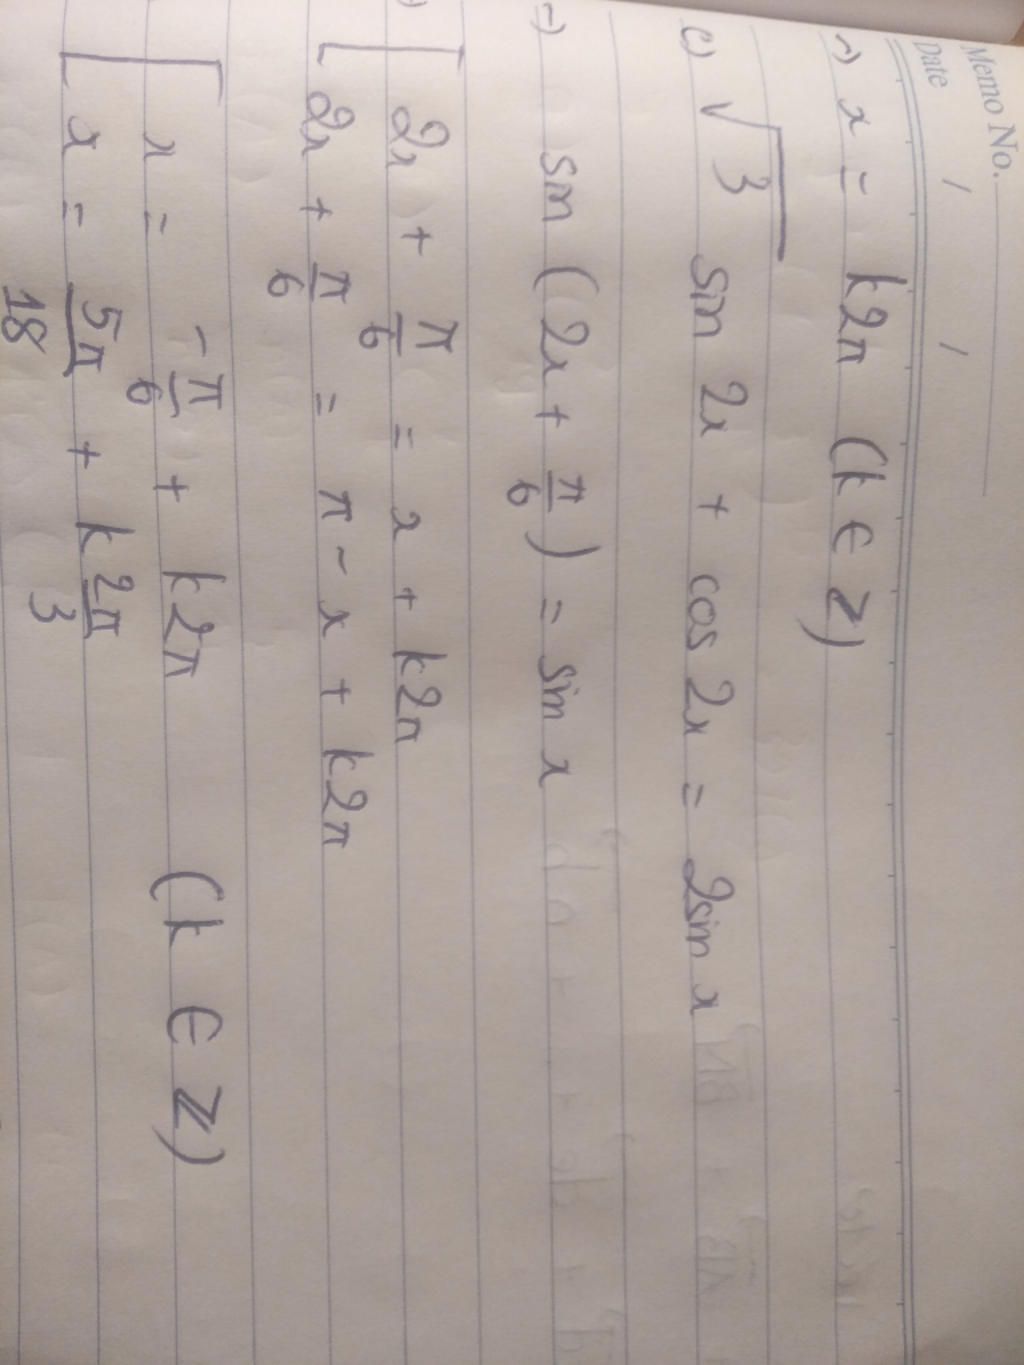 Memo No.
Date / /
⇒ x = k2π (k ∈ Z)
c) √3 sin 2x + cos 2x = 2sin x
⇒ sin (2x + π/6) = sin x
[ 2x + π/6 = x + k2π
[ 2x + π/6 = π - x + k2π
[ x = -π/6 + k2π (k ∈ Z)
[ x = 5π/18 + k2π/3